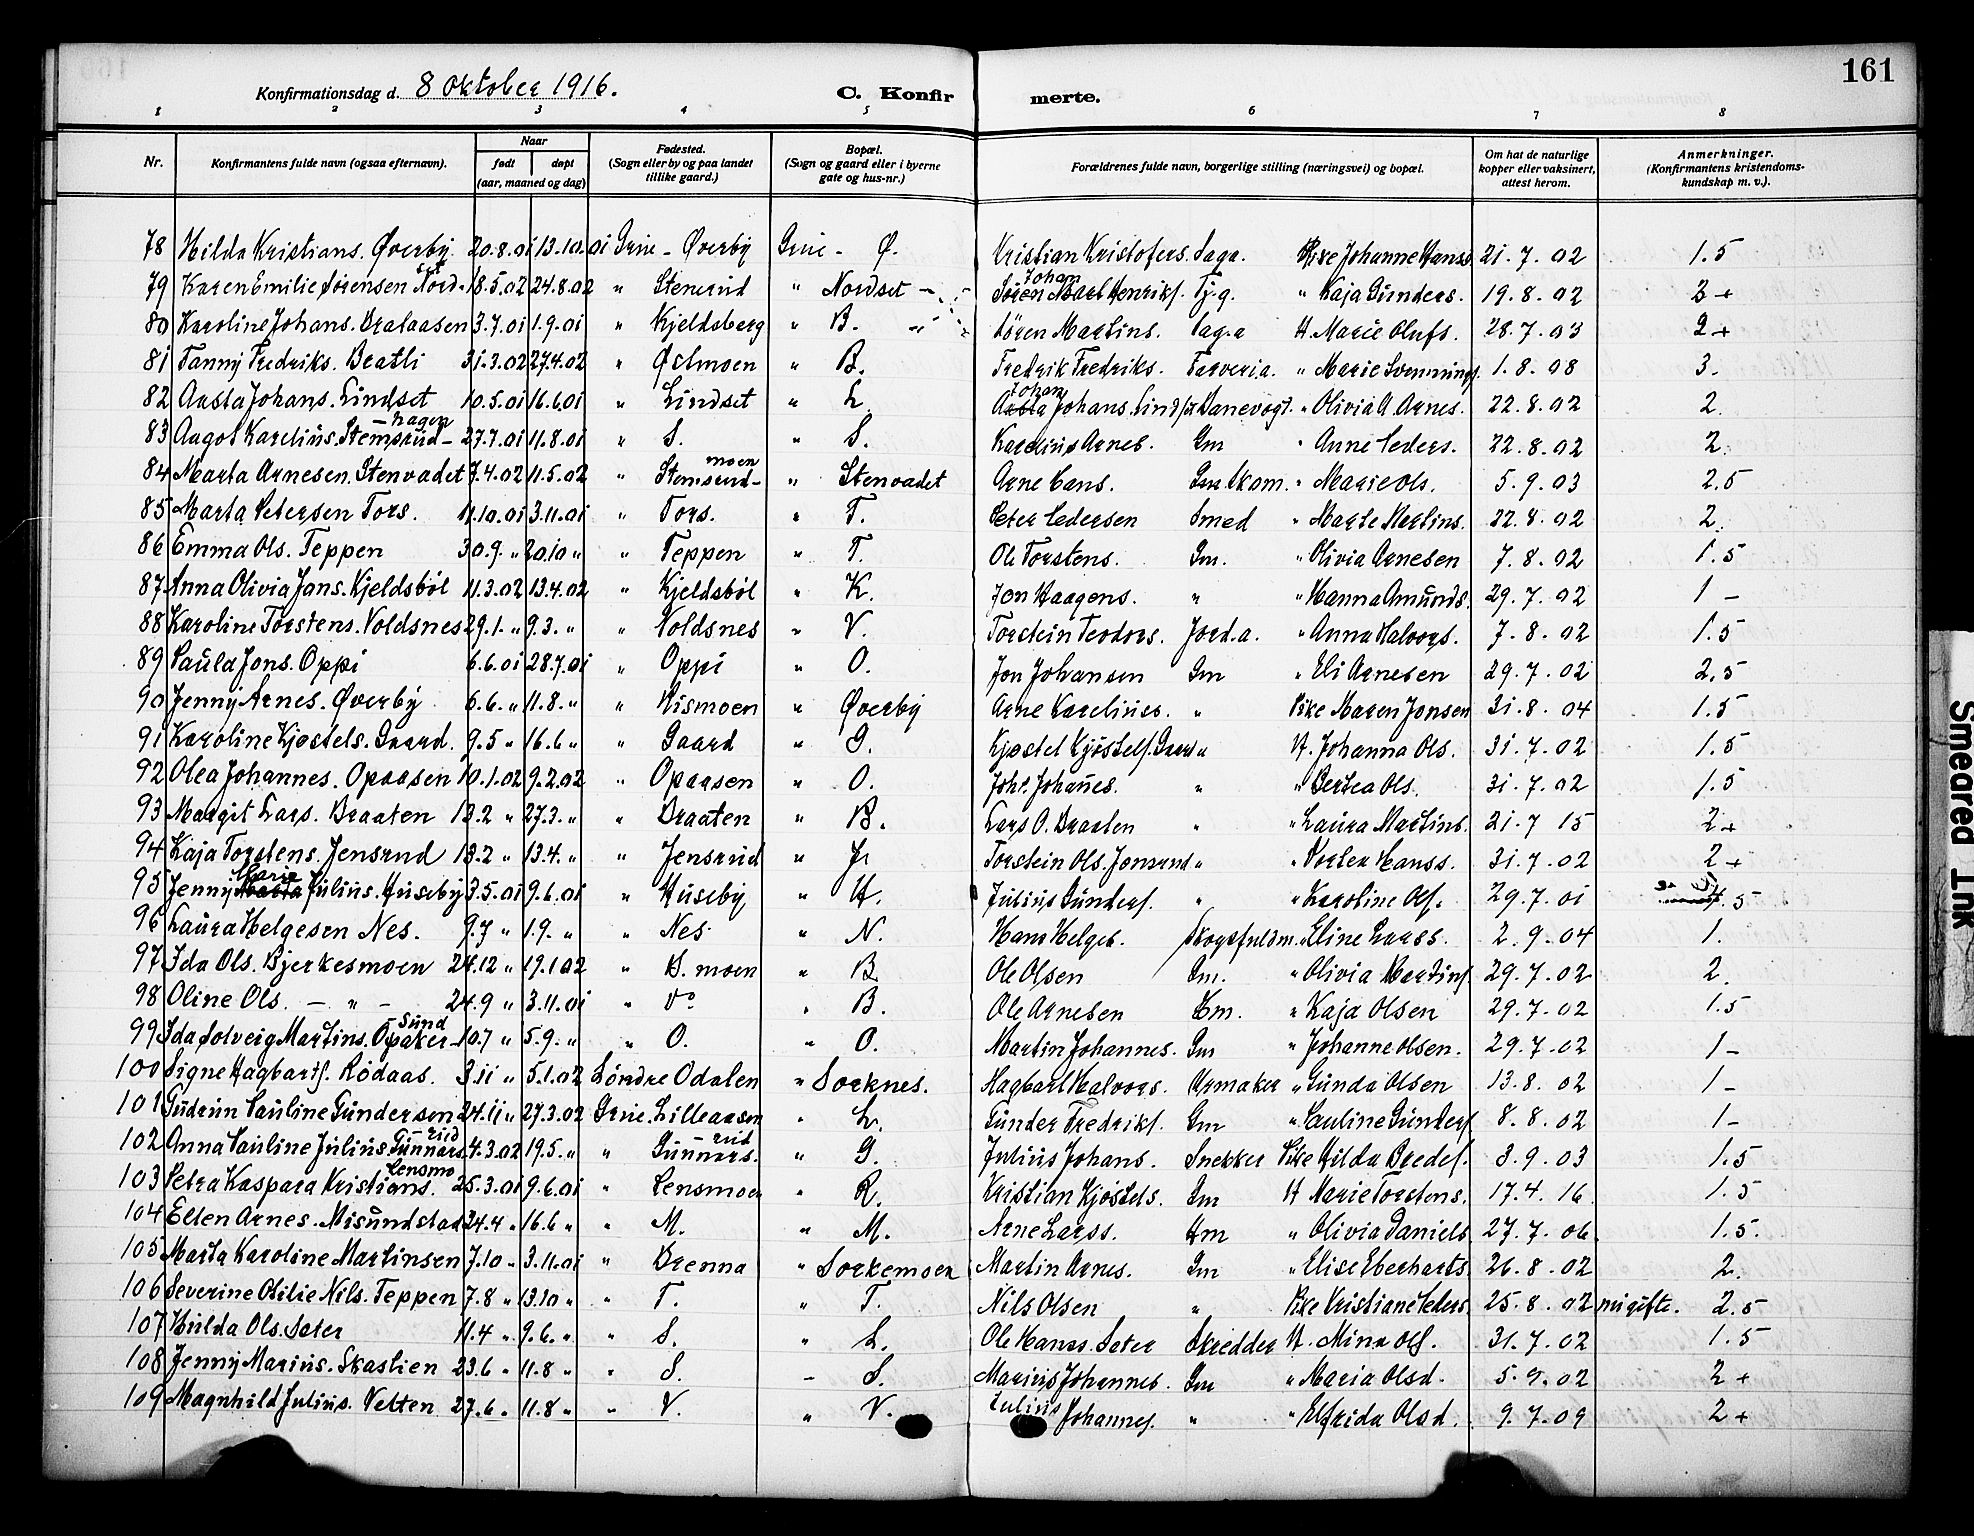 161
Konfirmationsdag d. 8 oktober 1916. C. Konfir merte.
1 2 3 4 5 6 7 8
Nr. Konfirmantens fulde navn (ogsaa efternavn). Naar født døpt (aar, maaned og dag) Fødested. (Sogn eller by og paa landet tillike gaard.) Bopæl. (Sogn og gaard eller i byerne gate og hus-nr.) Forældrenes fulde navn, borgerlige stilling (næringsvei) og bopæl. Om hat de naturlige kopper eller vaksinert, attest herom. Anmerkninger. (Konfirmantens kristendomskundskap m. v.).
78 Hilda Kristians. Øverby 20.8.01 13.10.01 Grue - Øverby Grue - Ø. Kristian Kristofers. Dagr. Pike Johanne Hanss 21.7.02 1.5
79 Karen Emilie Sørensen Nordset 18.5.02 24.8.02 " Stenerud " Nordset - Johan Henriks. Tj.g. " Kaja Gunders. 19.8.02 2+
80 Karoline Johans. Bralaasen 3.7.01 1.9.01 " Kjeldsberg " B. Søren Martins. Dag.a H. Marie Olufs. 28.7.03 2+
81 Fanny Fredriks. Bratli 31.3.02 27.4.02 " Østmoen " B. Fredrik Fredriks. Farveria. " Marie Svennings. 1.8.08 3.
82 Aasta Johans. Lindset 10.5.01 16.6.01 " Lindset " L. Johan Johans. Lindset Banevogt. " Olivia A. Arnes. 22.8.02 2.
83 Aagot Karelius. Stemsrudhagen 27.7.01 11.8.01 " S. " S. Karelius Arnes. Gm " Anne Peders. 22.8.02 2.
84 Marta Arnesen Stenvadet 7.4.02 11.5.02 " Stemsrudmoen " Stenvadet Arne Hans. Gm. " Marie Ols. 5.9.03 2.5
85 Marta Petersen Tors. 11.10.01 3.11.01 " Tors. " T. Peter Pedersen Smed " Marte Martins. 22.8.02 2.
86 Emma Ols. Teppen 30.9. " 20.10 " " Teppen " T. Ole Torstens. Gm. " Olivia Arnesen 7.8.02 1.5
87 Anna Olivia Jons. Kjeldsbøl 11.3.02 13.4.02 " Kjeldsbøl " K. Jon Haagens. " " Hanna Amunds. 29.7.02 1 -
88 Karoline Torstens. Voldsnes 29.1. " 9.3. " " Voldsnes " V. Torstein Teodors. Jord.a. " Anna Halvors. 7.8.02 1.5
89 Paula Jons. Oppi 6.6.01 28.7.01 " Oppi " O. Jon Johansen Gm " Eli Arnesen 29.7.02 2.5
90 Jenny Arnes. Øverby 6.6. " 11.8. " " Rismoen " Øverby Arne Kareliuss. " Pike Maren Jonsen 31.8.04 1.5
91 Karoline Kjøstels. Gaard. 9.5 " 16.6 " " Gaard " G. Kjøstel Kjøstels. Gaard " H. Johanna Ols. 31.7.02 1.5
92 Olea Johannes. Opaasen 10.1.02 9.2.02 " Opaasen " O. Joh. Johannes. " " Bertea Ols. 31.7.02 1.5
93 Margit Lars. Braaten 13.2 " 27.3. " " Braaten " B. Lars O. Braaten " " Laura Martins. 21.7 15 2+
94 Kaja Torstens. Jensrud 13.2 " 13.4. " " Jensrud " J. Torstein Ols. Jensrud " " Dortea Hanss. 31.7.02 2+
95 Jenny Marie Julius. Huseby 3.5.01 9.6.01 " Huseby " H. Julius Gunders. " " Karoline Ols. 29.7.01 1.5
96 Laura Helgesen Nes. 9.7 " 1.9. " " Nes. " N. Hans Helges. Skogsfuldm. " Eline Larss. 2.9.04 1.
97 Ida Ols. Bjerkesmoen 24.12 " 19.1 02 " B. moen " B. Ole Olsen Gm. " Olivia Martins. 29.7.02 2.
98 Oline Ols. - " - 24.9 " 3.11.01 " Do " B. Ole Arnesen Hm. " Kaja Olsen 29.7.02 1.5
99 Ida Solveig Martins. Opakersund 10.7 " 5.9. " " O. " O. Martin Johannes. Gm " Johanne Olsen. 29.7.02 1 -
100 Signe Hagbarts. Rødaas. 3.11 " 5.1.02 Søndre Odalen " Sorknes. Hagbart Halvors. Urmaker " Gunda Olsen 13.8.02 1 -
101 Gudrun Pauline Gundersen 24.11 " 27.3.02 Grue. Lilleaasen " L. Gunder Fredriks. Gm " Pauline Gunders. 8.8.02 1 -
102 Anna Pauline Julius. Gunnarsrud 4.3.02 19.5. " " Gunnarsrud " G. Julius Johans. Snekker Pike Hilda Bredes. 3.9.03 1.5
103 Petra Kaspara Kristians. Lensmo 25.3.01 9.6.01 " Lensmoen " R. Kristian Kjøstels. Gm H Marie Torstens. 17.4.16 1.5
104 Ellen Arnes. Misundstad 24.4 " 16.6 " " M. " M. Arne Larss. Hm " Olivia Daniels 27.7.06. 1.5.
105 Marta Karoline Martinsen 7.10 " 3.11.01 " Brenna " Sorkemoen Martin Arnes. Gm " Elise Eberharts. 26.8.02 2.
106 Severine Otilie Nils. Teppen 7.8 " 13.10 " " T. " T. Nils Olsen " Pike Kristiane Peders 25.8.02 nu gifte. 2.5
107 Hulda Ols. Sæter 11.4 " 9.6. " " S. " S. Ole Hanss. Sæter Skredder H. Mina Ols. 31.7.02 1.5
108 Jenny Marius. Skastien 23.6 " 11.8 " " S. - S. Marius Johannes. Gm " Maria Olsd. 5.9.02 2+
109 Magnhild Julius. Vetten 27.6 " 11.8 " " V. " V. Julius Johannes. " " Elfrida Olsd. 9.7.09 2+
Smeared Ink